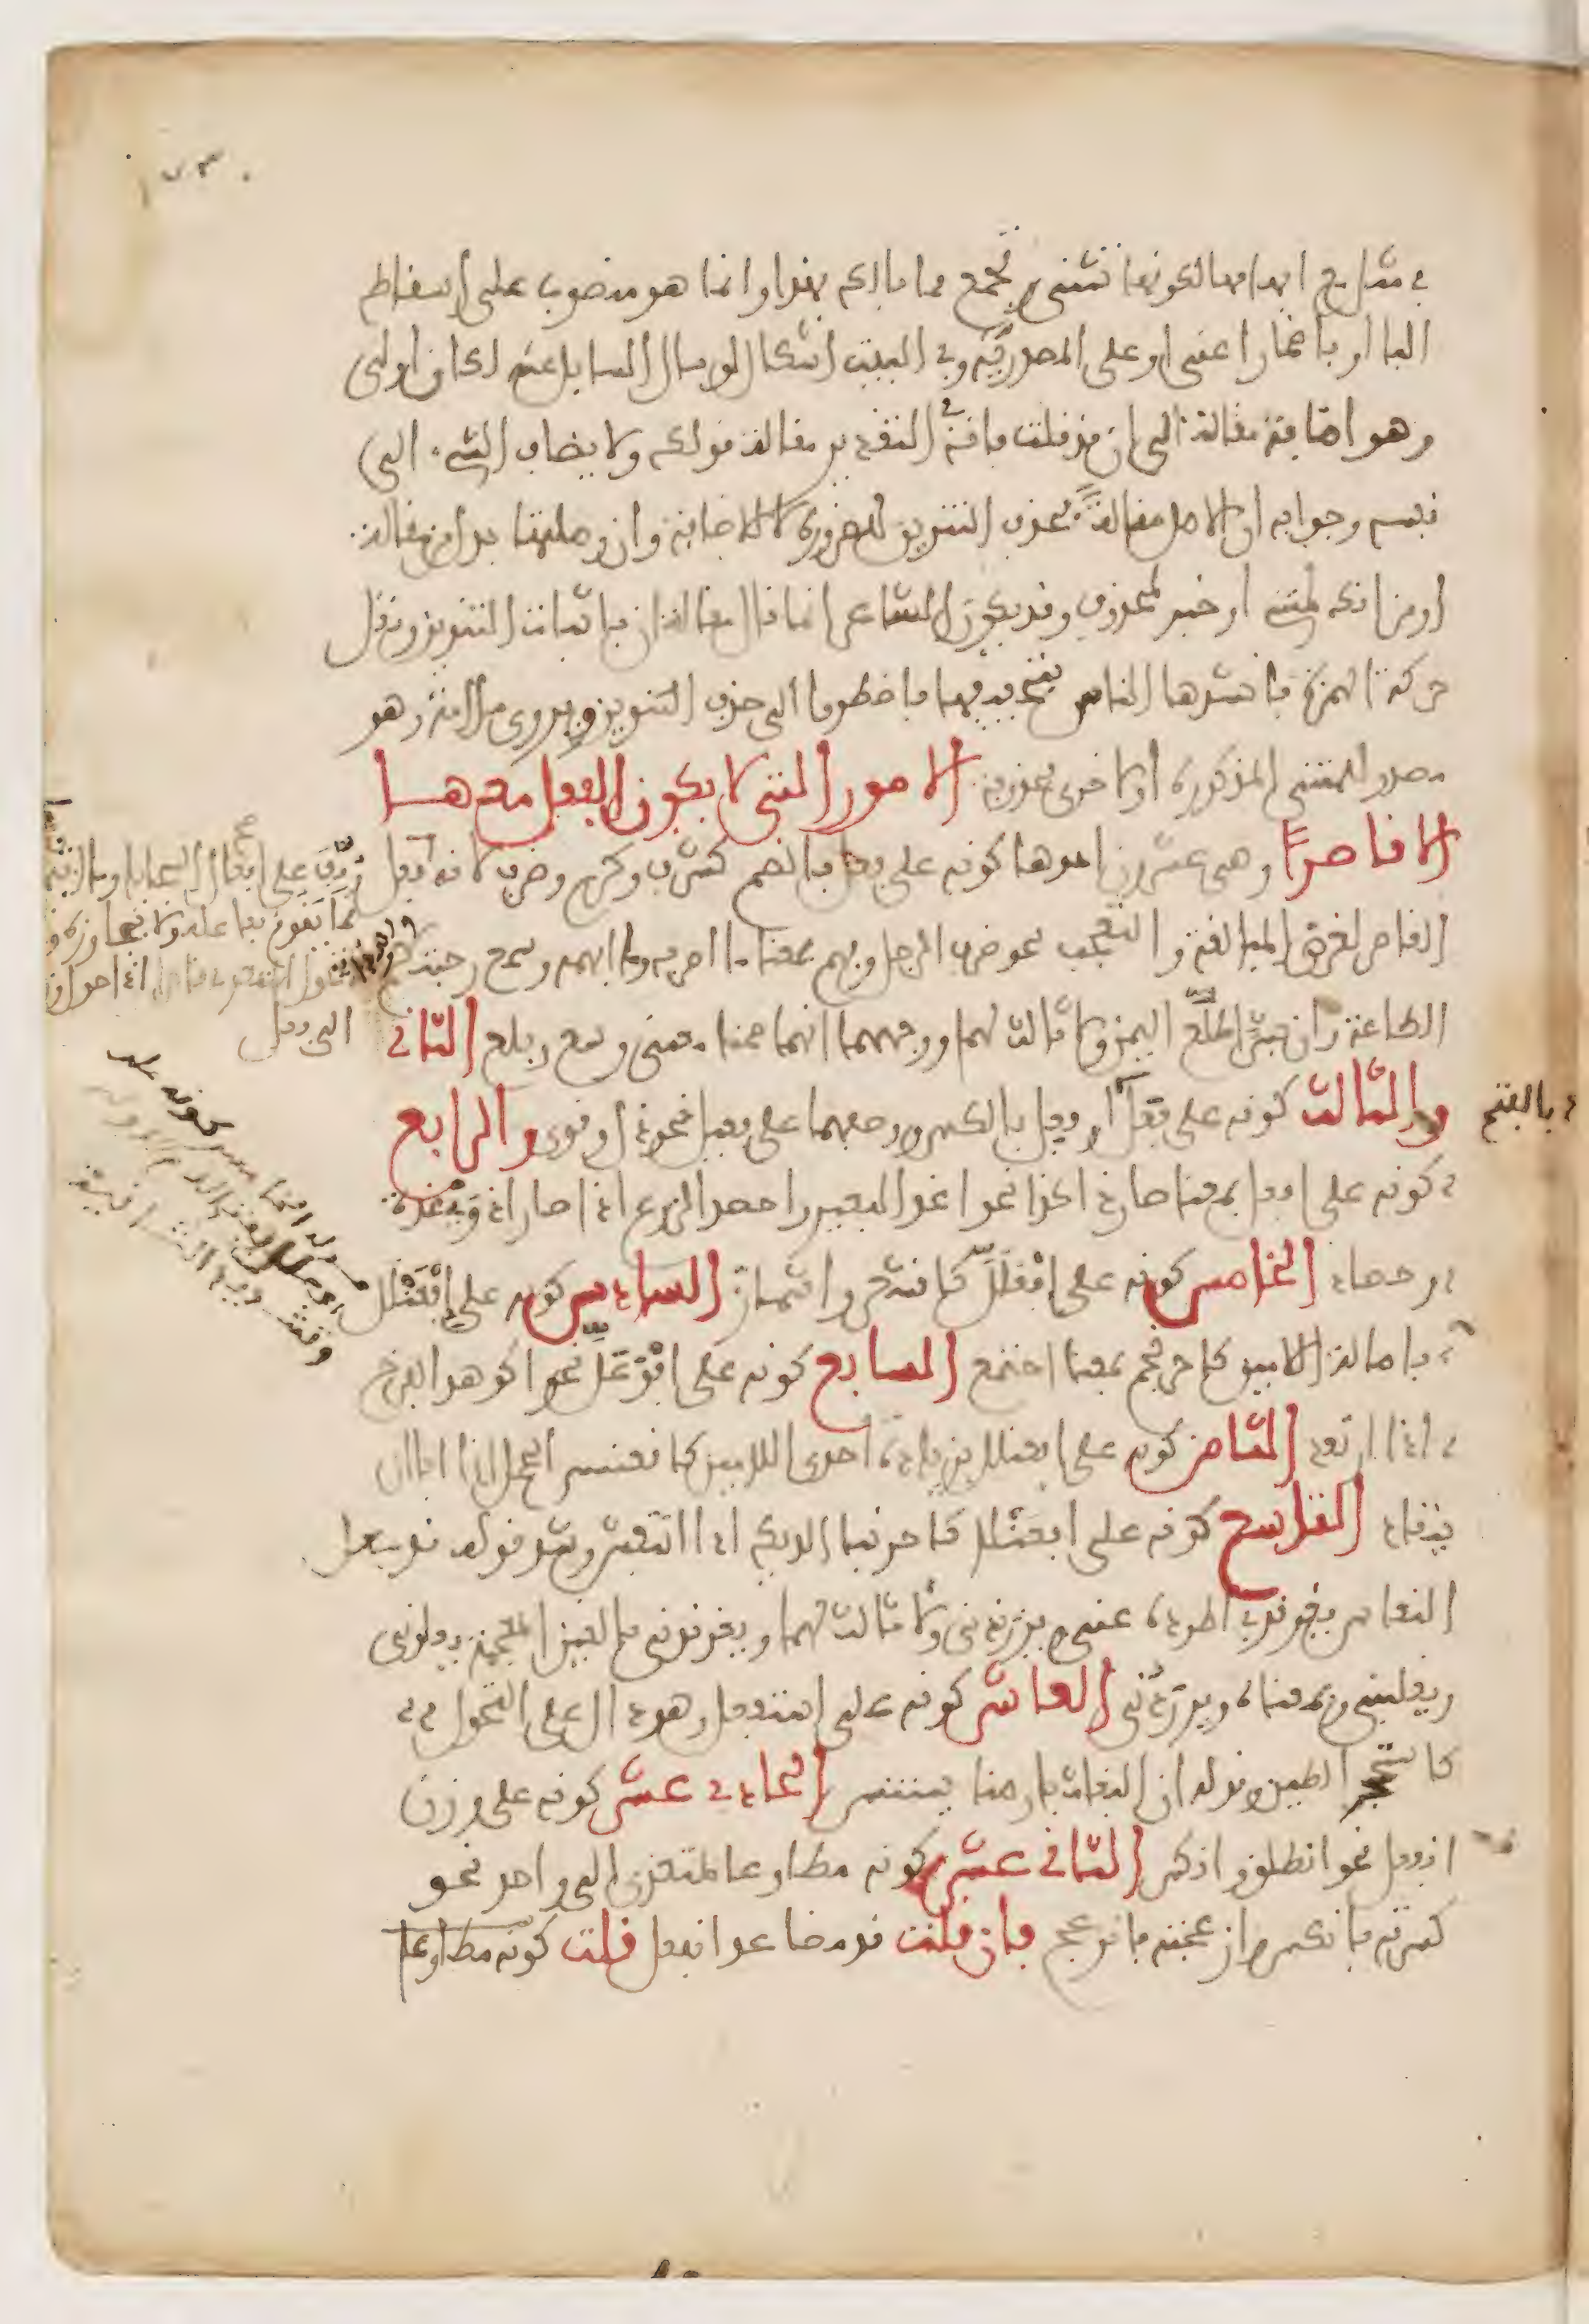 في شدة ابهامها لكونها تثنى وتجمع فما بالك بهذا وانما هو منصوب على اسقاط
البا او باضمار اعني او على المصدرية وفي البيت اشكال لو سال السايل عنه لكان اولى
وهو اضافة مقالة الى ان قد قلت فانه في التقدير مقالة قولك ولا يضاف الشيء الى
نفسه وجوابه ان الاصل مقالةً فحذف التنوين للضرورة لا للاضافة وان وصلتها بدل من مقالة
او من انك لمتني او خبر لمحذوف وقد يكون الشاعر انما قال مقالة ان باثبات التنوين ونقل
حركة الهمزة فانشدها الناس بتحقيقها فاضطروا الى حذف التنوين ويروى ملامة وهو
مصدر للمتني المذكورة او لاخرى محذوفة الامور التي لا يكون الفعل معها
الا قاصرًا وهي عشرون احدها كونه على فعل بالضم كشرف وكرم وضرب لانه
وقف على افعال السجايا وما اشبهها
مما يقوم بفاعله ولا يتجاوزه
يتحول المتعدي قاصرا اذا حول وزنه
الى فعل
القاصر لغرض المبالغة والتعجب نحو ضرب الرجل وفهم بمعنا ما اضربه وما افهمه وسمع رحبتكم
الطاعة وان بشرًا طلُع اليمن ولا ثالث لهما ووجههما انهما ضمنا معنى وسع وبلغ الثاني
والثالث كونه على فعَل او فعِل بالكسر ووصفهما على فعيل نحو ذل وقوي والرابع
بالفتح
كونه على افعل بمعنا صار ذا كذا نحو اغد البعير واحصد الزرع اذا صارا ذوي غدة
وحصاد الخامس كونه على افعلَلَّ كاقشعر واشماز السادس كونه على افعنلل
باصالة اللامين كاحرنجم بمعنا اجتمع السابع كونه على افوعلّ نحو اكوهد الفرخ
اذا ارتعد الثامن كونه على افعنلل بزيادة احدى اللامين كاقعنسس الجمل اذا ابى ان
ينقاد التاسع كونه على افعنلى كاحرنبا الديك اذا انتفش وشذ قوله قد جعل
النعاس يغرنديني اطرده عني ويسرنديني ولا ثالث لهما ويغرنديني بالغين المعجمة يعلوني
ويغلبني وبمعناه ويسرنديني العاشر كونه على استفعل وهو دال على التحول
كاستحجر الطين وقوله ان البغاث بارضنا يستنسر الحادي عشر كونه على وزن
انفعل نحو انطلق وانكسر الثاني عشر كونه مطاوعا لمتعدي الى واحد نحو
كسرته فانكسر وازعجته فانزعج فان قلت قد مضا عد انفعل قلت كونه مطاوعا